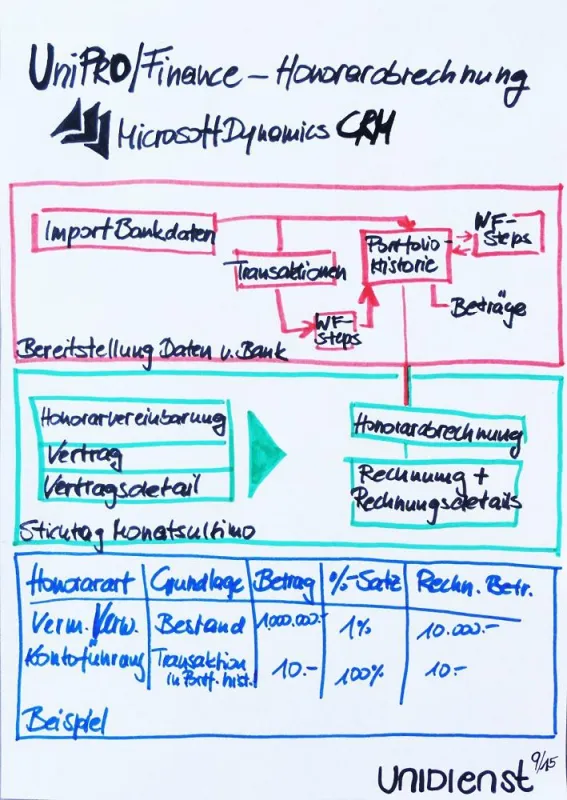 UniPRO/Finance – Honorarabrechnung
Microsoft Dynamics CRM
Import Bankdaten
Transaktionen
Portfolio-
Historie
WF-
Steps
WF-
Steps
Beträge
Bereitstellung Daten v. Bank
Honorarvereinbarung
Vertrag
Vertragsdetail
Honorarabrechnung
Rechnung +
Rechnungsdetails
Stichtag Monatsultimo
Honorarart Grundlage Betrag %-Satz Rechn. Betr.
Verm. Verw. Bestand 1.000.000.- 1% 10.000.-
Kontoführung Transaktion
in Portf. hist. 10.- 100% 10.-
Beispiel
UNIDIENST 9/15